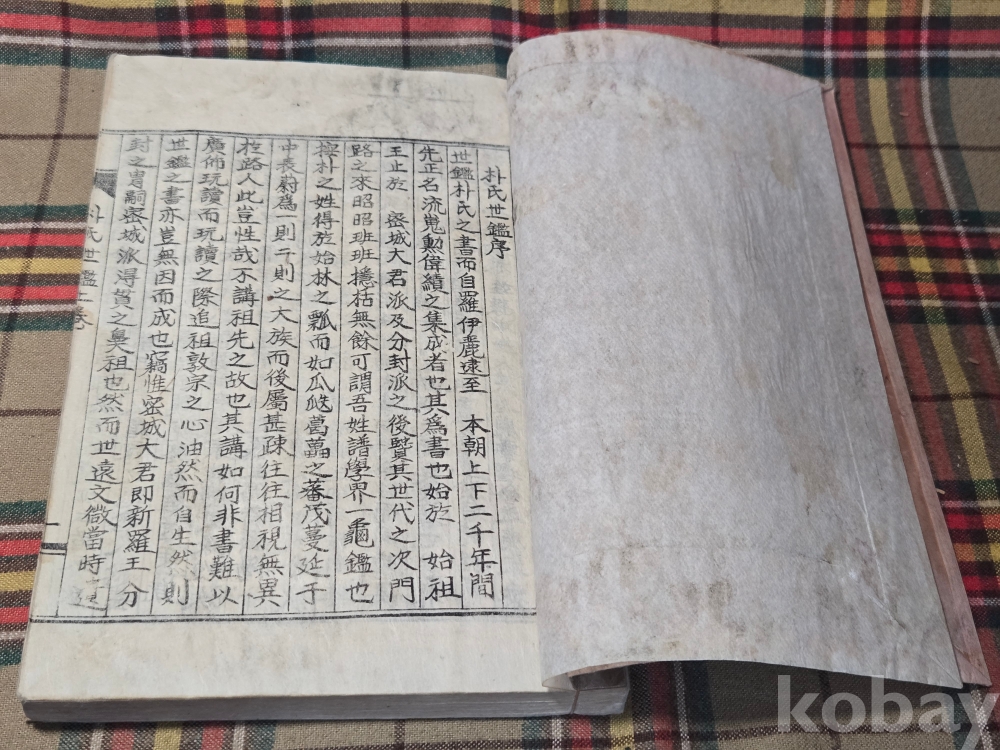 朴氏世鑑序
世鑑朴氏之書而自羅伊麗逮至 本朝上下二千年間
先正名流嵬勳偉績之集成者也其爲書也始於 始祖
王止於 密城大君派及分封派之後賢其世代之次門
路之來昭昭班班檼栝無餘可謂吾姓譜學界一龜鑑也
朴之姓得於始林之瓢而如瓜瓞葛藟之蕃茂蔓延于
中表蔚爲一則二則之大族而後屬甚疎往往相視無異
於路人此豈性哉不講祖先之故也其講如何非書難以
廣佈玩讀而玩讀之際追祖敦宗之心油然而自生然則
世鑑之書亦豈無因而成也竊惟密城大君即新羅王分
封之冑嗣密城派得貫之鼻祖也然而世遠文微當時
朴氏世鑑上卷
kobay